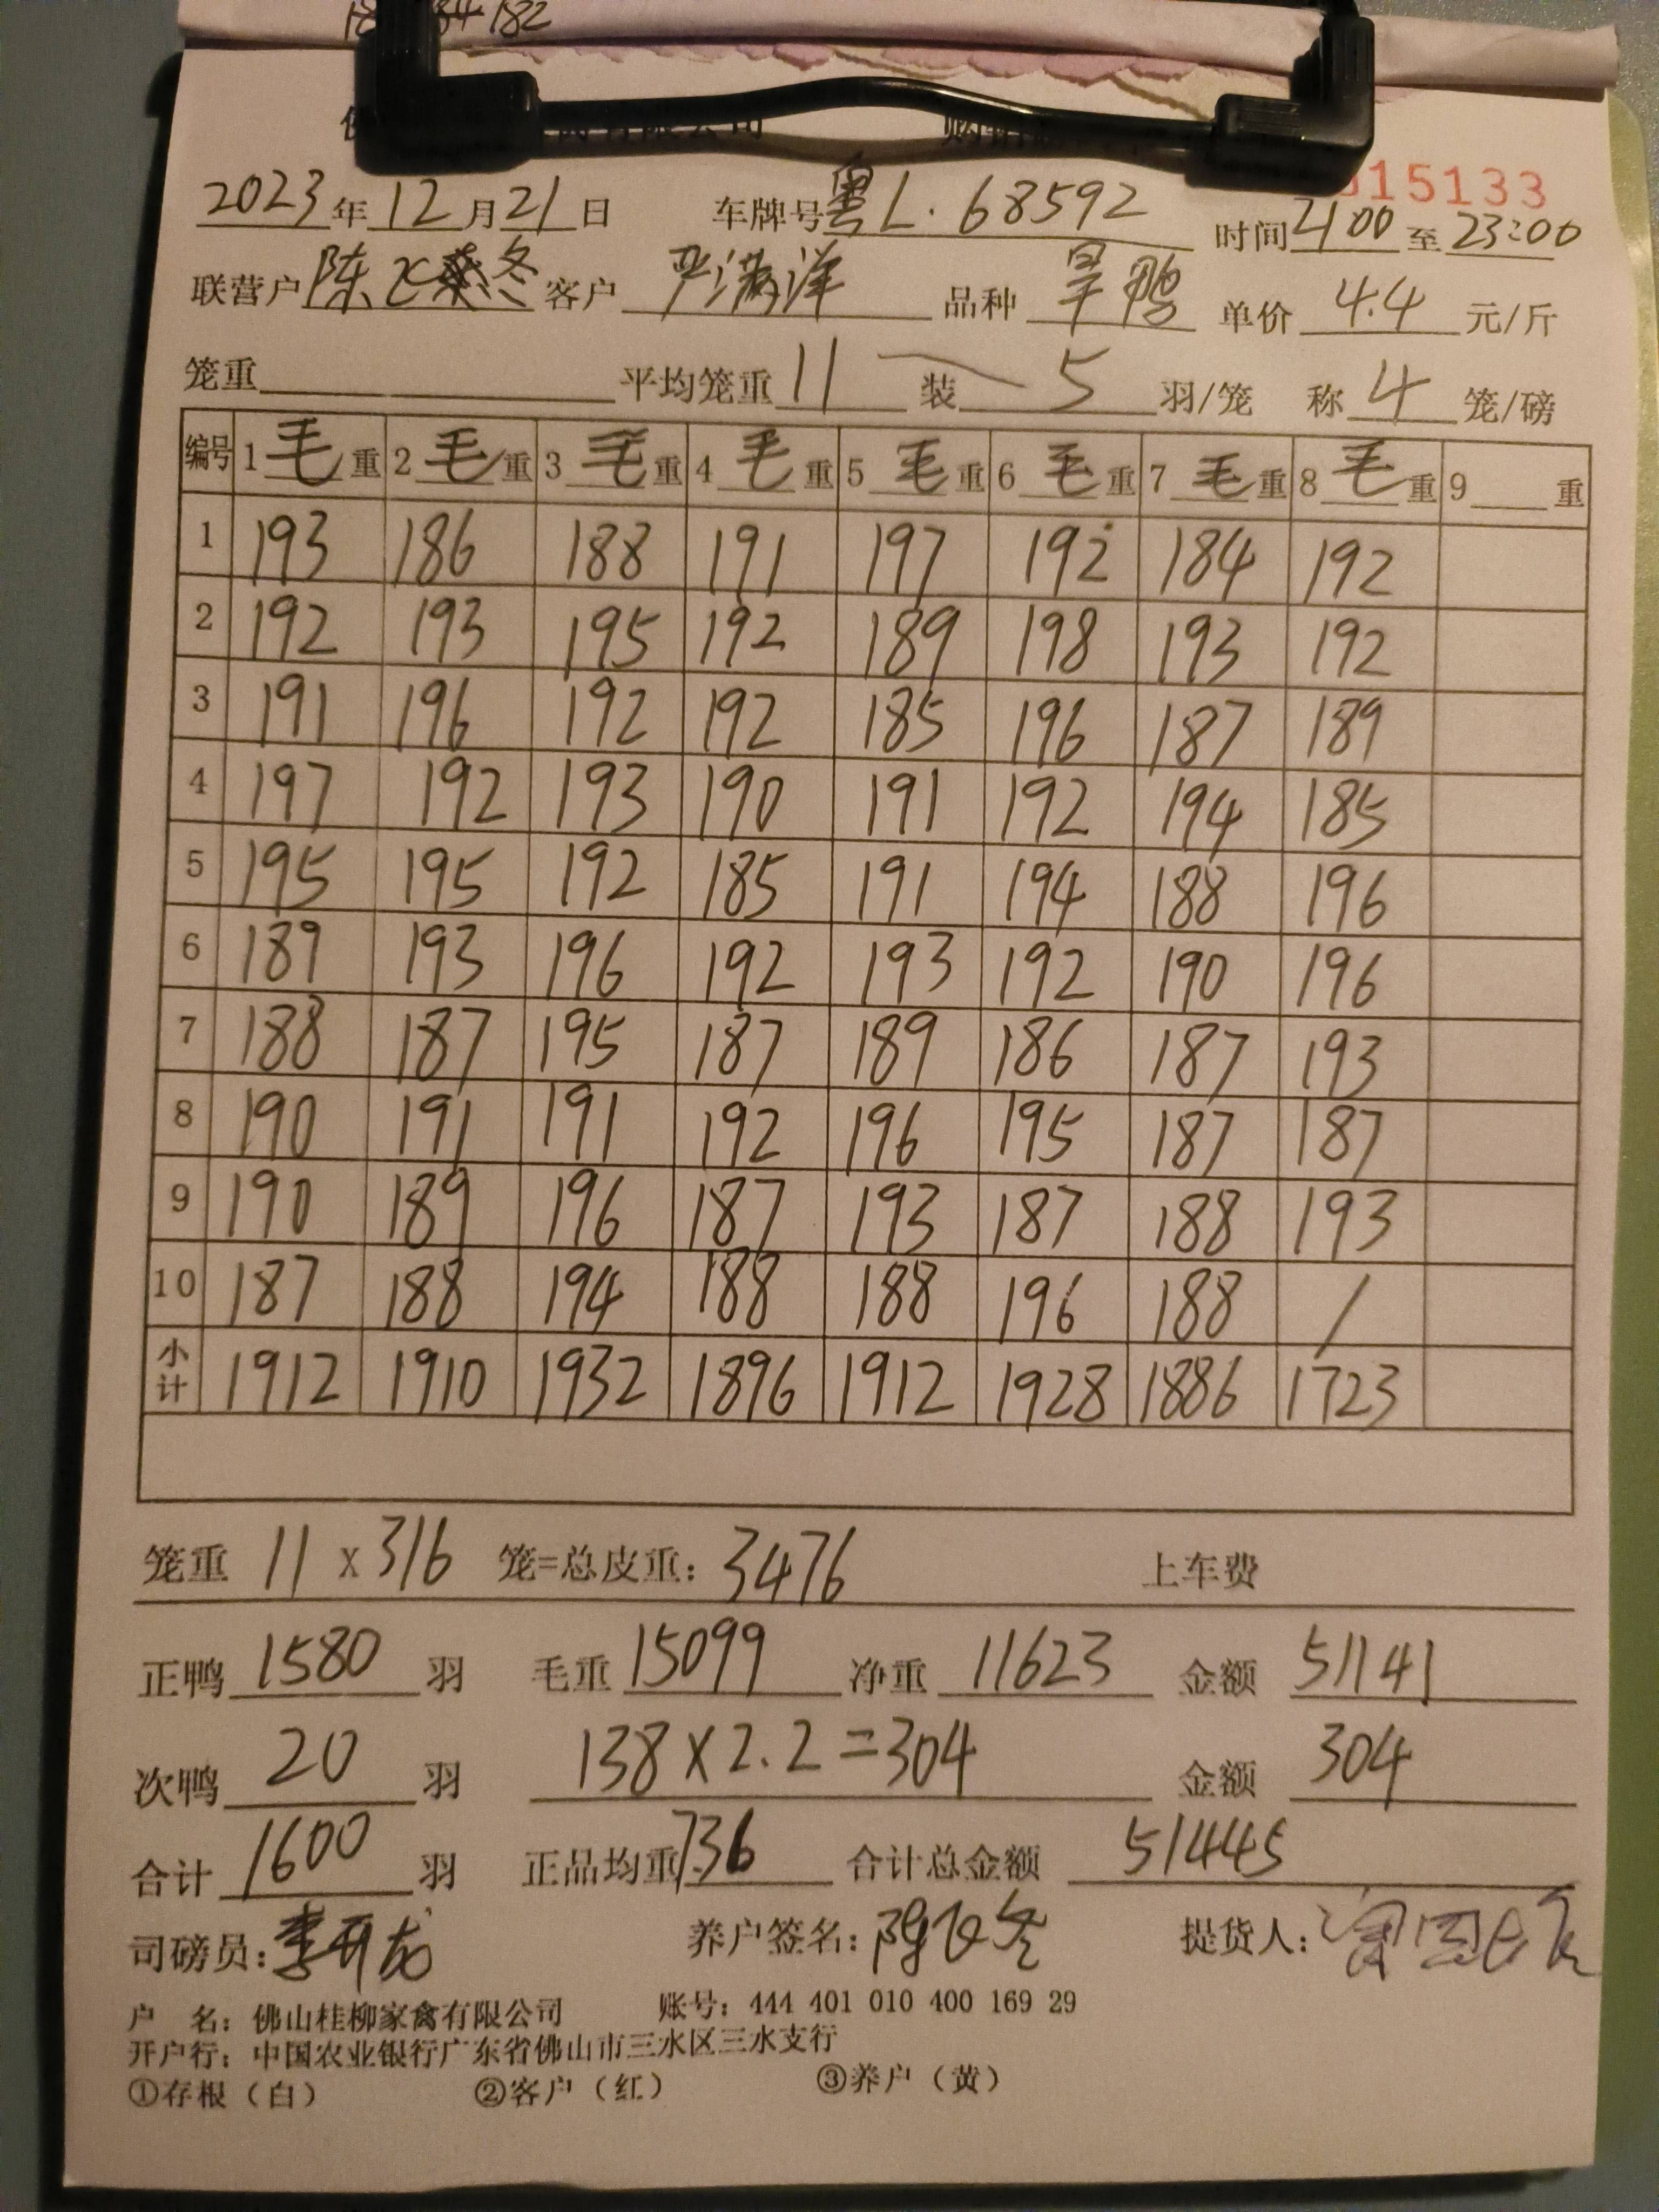 182
有限公司 购销
15133
2023年12月21日 车牌号粤L.68592 时间21:00至23:00
联营户陈飞冬 客户严满洋 品种旱鸭 单价4.4元/斤
笼重 平均笼重11 装5羽/笼 称4笼/磅
编号 1毛重 2毛重 3毛重 4毛重 5毛重 6毛重 7毛重 8毛重 9 重
1 193 186 188 191 197 192 184 192
2 192 193 195 192 189 198 193 192
3 191 196 192 192 185 196 187 189
4 197 192 193 190 191 192 194 185
5 195 195 192 185 191 194 188 196
6 189 193 196 192 193 192 190 196
7 188 187 195 187 189 186 187 193
8 190 191 191 192 196 195 187 187
9 190 189 196 187 193 187 188 193
10 187 188 194 188 188 196 188 /
小计 1912 1910 1932 1896 1912 1928 1886 1723
笼重 11 x 316 笼=总皮重: 3476 上车费
正鸭1580羽 毛重15099 净重11623 金额51141
次鸭20羽 138 x 2.2 = 304 金额304
合计1600羽 正品均重7.36 合计总金额51445
司磅员:李开龙 养户签名:陈飞冬 提货人:
户 名: 佛山桂柳家禽有限公司 账号: 444 401 010 400 169 29
开户行: 中国农业银行广东省佛山市三水区三水支行
①存根（白） ②客户（红） ③养户（黄）